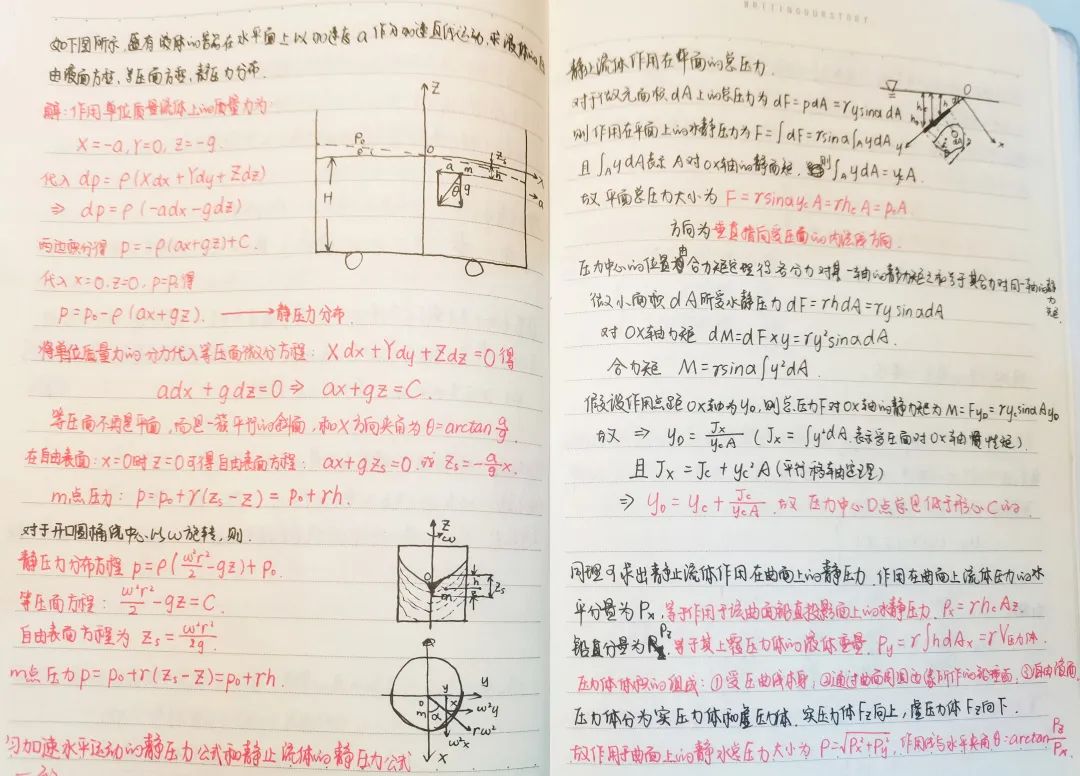 如下图所示,盛有液体的容器在水平面上以加速度a作匀加速直线运动,求液体的自
由液面方程,等压面方程,静压力分布.
解:作用单位质量流体上的质量力为:
X=-a, Y=0, Z=-g.
代入 dp=ρ(Xdx+Ydy+Zdz)
⇒ dp=ρ(-adx-gdz)
两边积分得 p=-ρ(ax+gz)+C.
代入x=0,z=0,p=p₀得
p=p₀-ρ(ax+gz). ⟶静压力分布.
将单位质量力的分力代入等压面微分方程: Xdx+Ydy+Zdz=0得
adx+gdz=0 ⇒ ax+gz=C.
等压面不再是平面,而是一簇平行的斜面,和X方向夹角为θ=arctan a/g.
在自由表面:x=0时z=0可得自由表面方程: ax+gzₛ=0. 或 zₛ=-a/g x.
m点压力: p=p₀+r(zₛ-z)=p₀+rh.
z
p₀
o
zₛ
a
m
h
x
H
θ
g
a
对于开口圆桶绕中心以ω旋转,则.
静压力分布方程 p=ρ(ω²r²/2-gz)+p₀.
等压面方程: ω²r²/2-gz=C.
自由表面方程为 zₛ=ω²r²/2g
m点压力p=p₀+r(zₛ-z)=p₀+rh.
z
ω
o
h
m
zₛ
o
y
x
m
α
y
ω²y
rω²
ω²x
x
匀加速水平运动的静压力公式和静止流体的静压力公式
WRITINGOURSTORY
静止流体作用在平面的总压力.
对于微元面积dA上的总压力为dF=pdA=rysinαdA
则作用在平面上的水静压力为F=∫dF=rsinα∫ₐydA
且∫ₐydA表示A对OX轴的静面矩,则∫ₐydA=y꜀A.
故平面总压力大小为 F=rsinαy꜀A=rh꜀A=p꜀A.
方向为垂直指向受压面的内法线方向.
O
h
y
x
压力中心的位置由合力矩定理得各分力对某一轴的静力矩之和等于其合力对同一轴的静力矩
微小面积dA所受水静压力dF=rhdA=rysinαdA
对OX轴力矩 dM=dF×y=ry²sinαdA.
合力矩 M=rsinα∫y²dA.
假设作用点距OX轴为y_D,则总压力F对OX轴的静力矩为M=Fy_D=ry꜀sinαAy_D
故 ⇒ y_D=Jₓ/y꜀A (Jₓ=∫y²dA.表示受压面对OX轴惯性矩)
且 Jₓ=J꜀+y꜀²A(平行移轴定理)
⇒ y_D=y꜀+J꜀/y꜀A .故 压力中心D点总是低于形心C的.
同理可求出静止流体作用在曲面上的静压力.作用在曲面上流体压力的水
平分量为Pₓ,等于作用于该曲面铅直投影面上的水静压力. Pₓ=rh꜀A_z.
铅直分量为P_z,等于其上压力体的液体重量. P_y=r∫hdAₓ=rV压力体.
压力体体积的组成:①受压曲线本身,②通过曲面周围边缘所作的铅垂面,③自由液面.
压力体分为实压力体和虚压力体.实压力体F_z向上,虚压力体F_z向下.
故作用于曲面上的静水总压力大小为 P=√(Pₓ²+P_y²),作用线与水平夹角θ=arctan P_z/Pₓ